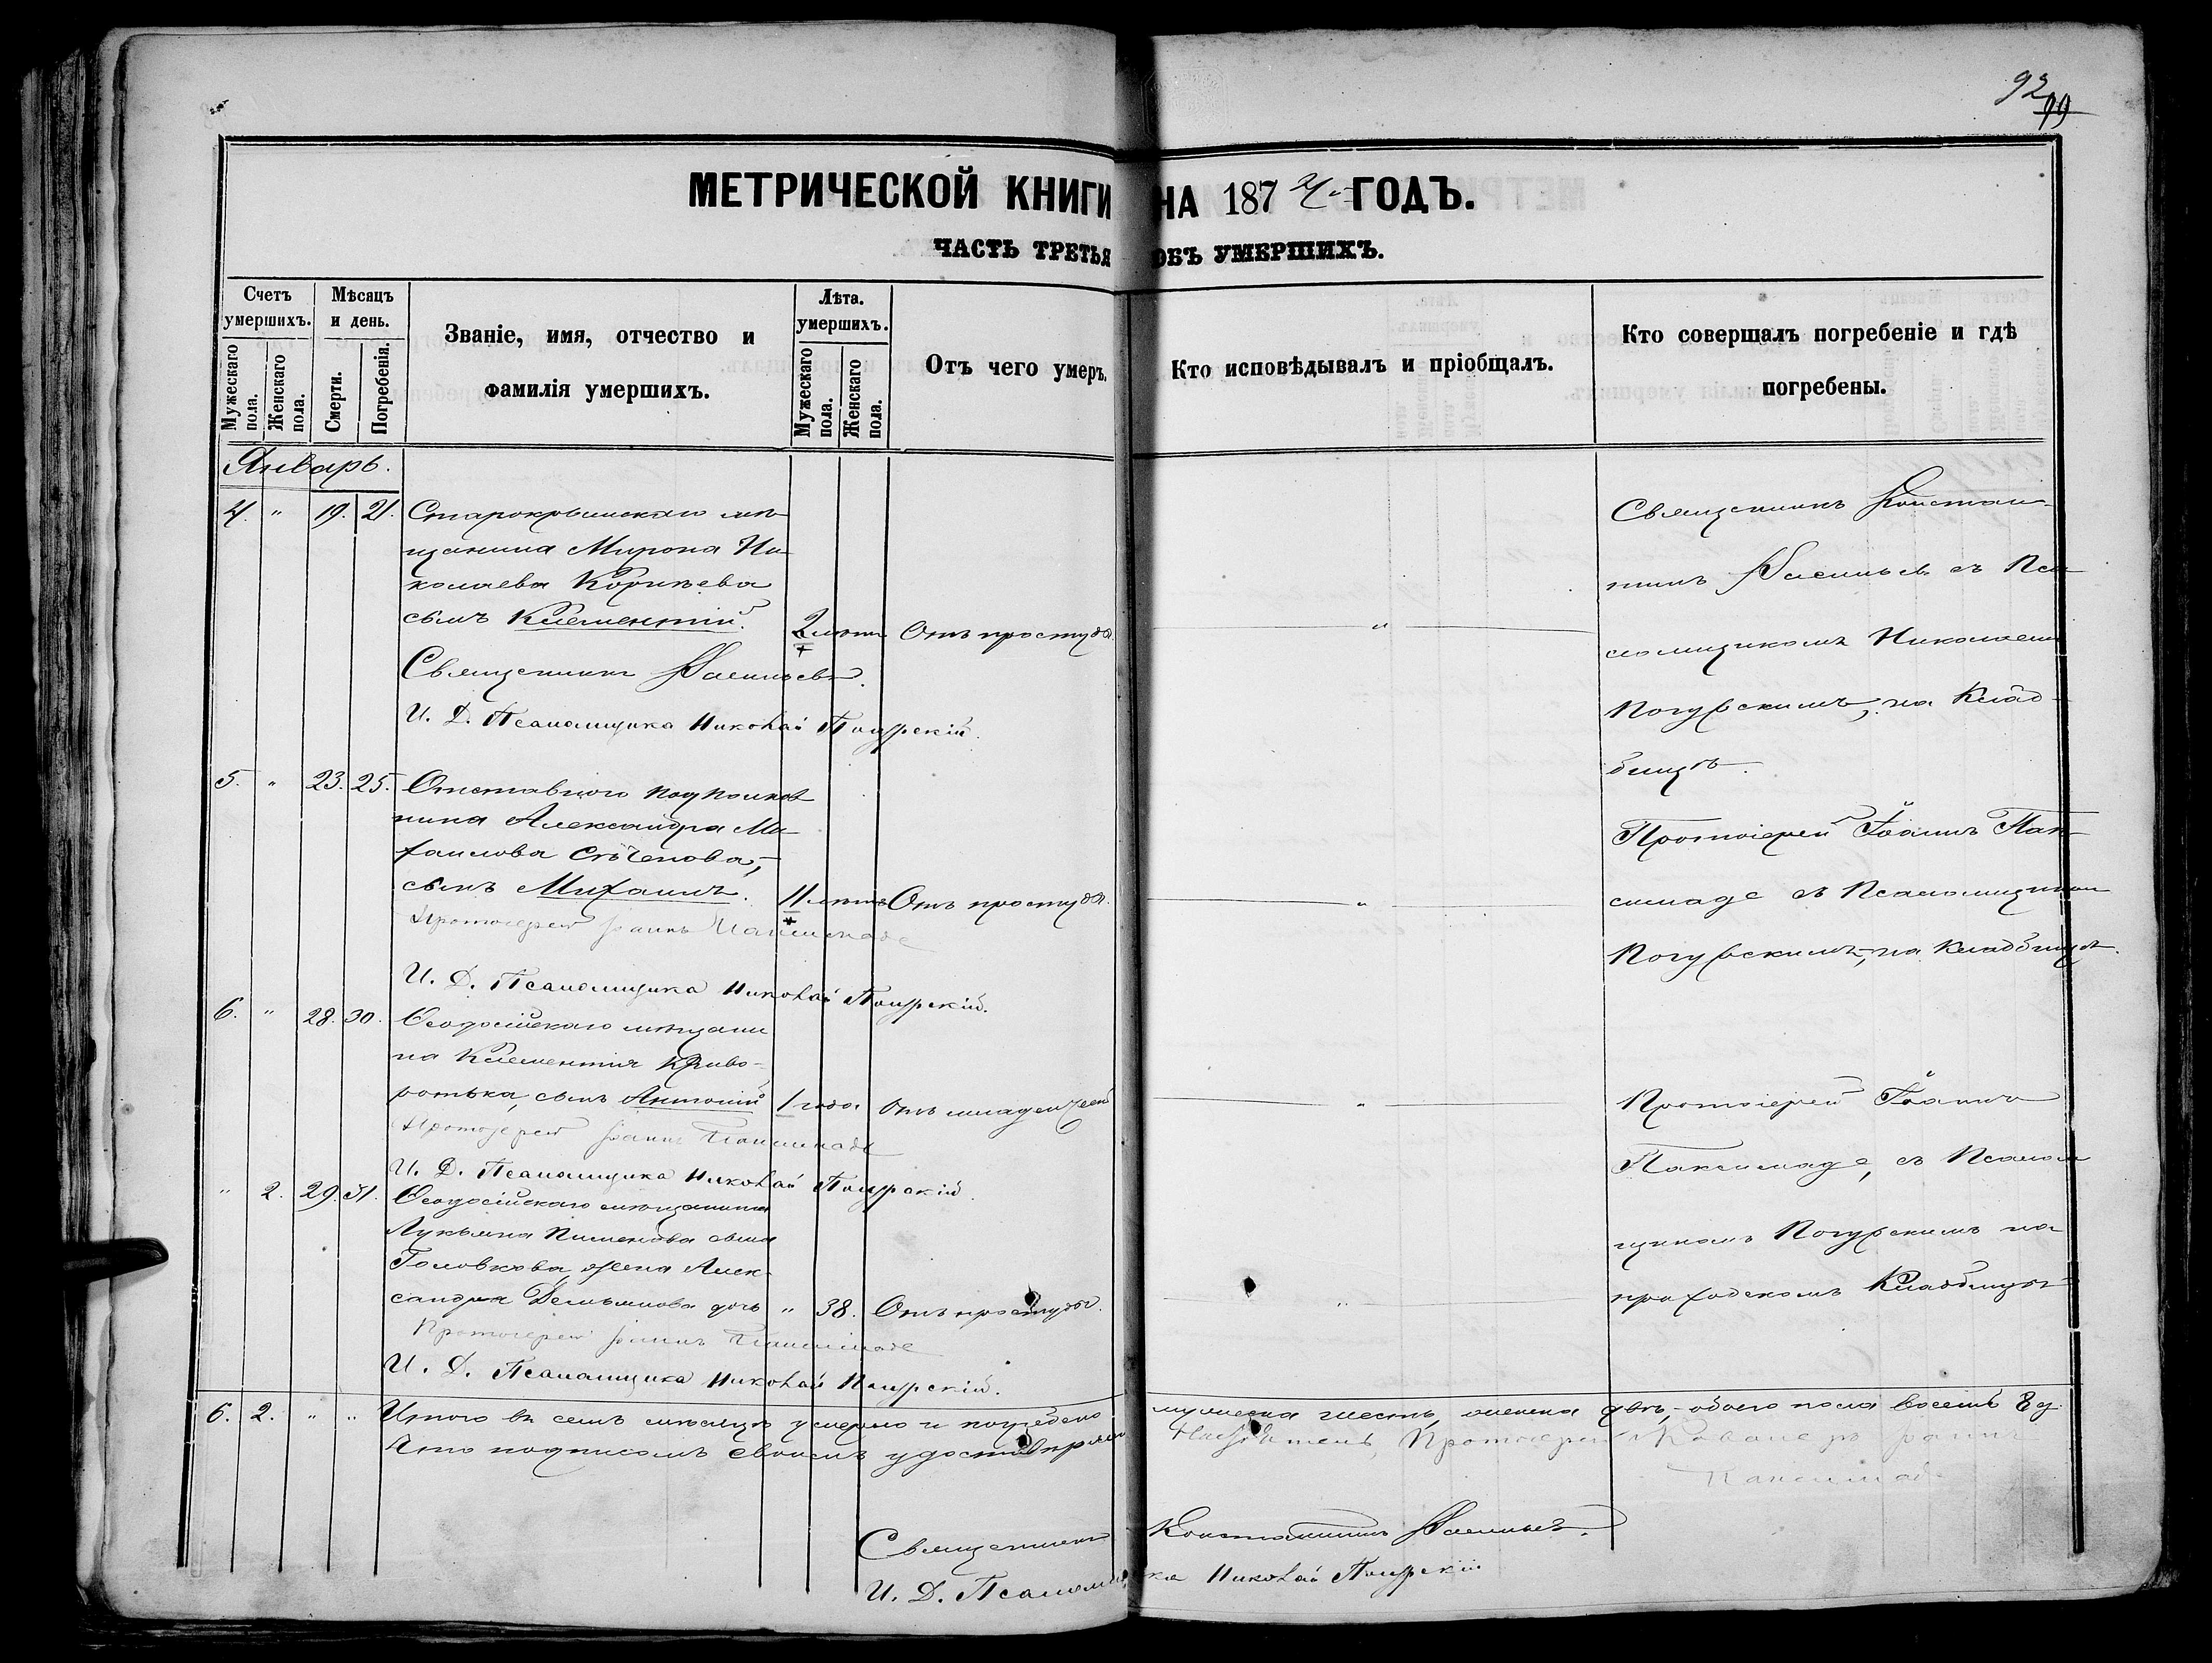 92
79
МЕТРИЧЕСКОЙ КНИГИ НА 1874 ГОДЪ.
ЧАСТЬ ТРЕТЬЯ ОБЪ УМЕРШИХЪ.
Счетъ умершихъ.
Мужескаго пола.
Женскаго пола.
Мѣсяцъ и день.
Смерти.
Погребенія.
Званіе, имя, отчество и
фамилія умершихъ.
Лѣта.
умершихъ.
Мужескаго пола.
Женскаго пола.
Отъ чего умеръ.
Кто исповѣдывалъ и пріобщалъ.
Кто совершалъ погребеніе и гдѣ
погребены.
Январь.
4. " 19. 21. Старокрымскаго мѣ-
щанина Мирона Ни-
колаева Корнѣева
сынъ Климентій. 2 лѣтъ Отъ простуды. "
Священникъ Васильевъ.
И. Д. Псаломщика Николай Погурскій.
Священникъ Констан-
тинъ Васильевъ съ Пса-
ломщикомъ Николаемъ
Погурскимъ, на Клад-
бищѣ.
5. " 23. 25. Отставного подполков
ника Александра Ми-
хаилова Сѣченова,
сынъ Михаилъ. 11 лѣтъ Отъ простуды. "
Протоіерей Іоаннъ Паксимаде
И. Д. Псаломщика Николай Погурскій.
Протоіерей Іоаннъ Пак-
симаде съ Псаломщикомъ
Погурскимъ, на Кладбищѣ.
6. " 28. 30. Ѳеодосійскаго мѣщани
на Климентія Криво-
ротька, сынъ Антоній 1 года Отъ младенческой "
Протоіерей Іоаннъ Паксимаде
И. Д. Псаломщика Николай Погурскій.
Протоіерей Іоаннъ
Паксимаде, съ Псалом
щикомъ Погурскимъ на
приходскомъ Кладбищѣ
" 2. 29. 31. Ѳеодосійскаго мѣщанина
Лукьяна Пименова сына
Головкова жена Алек-
сандра Демьянова дочь " 38. Отъ простуды. "
Протоіерей Іоаннъ Паксимаде
И. Д. Псаломщика Николай Погурскій.
6. 2. " " Итого въ семъ мѣсяцѣ умерло и погребено мужеска шесть, женска двѣ, обоего пола восемь 8 д.
Что подписомъ своимъ удостовѣряемъ Настоятель, Протоіерей и Кавалеръ Іоаннъ
Паксимаде
Священникъ Константинъ Васильевъ.
И. Д. Псаломщика Николай Погурскій